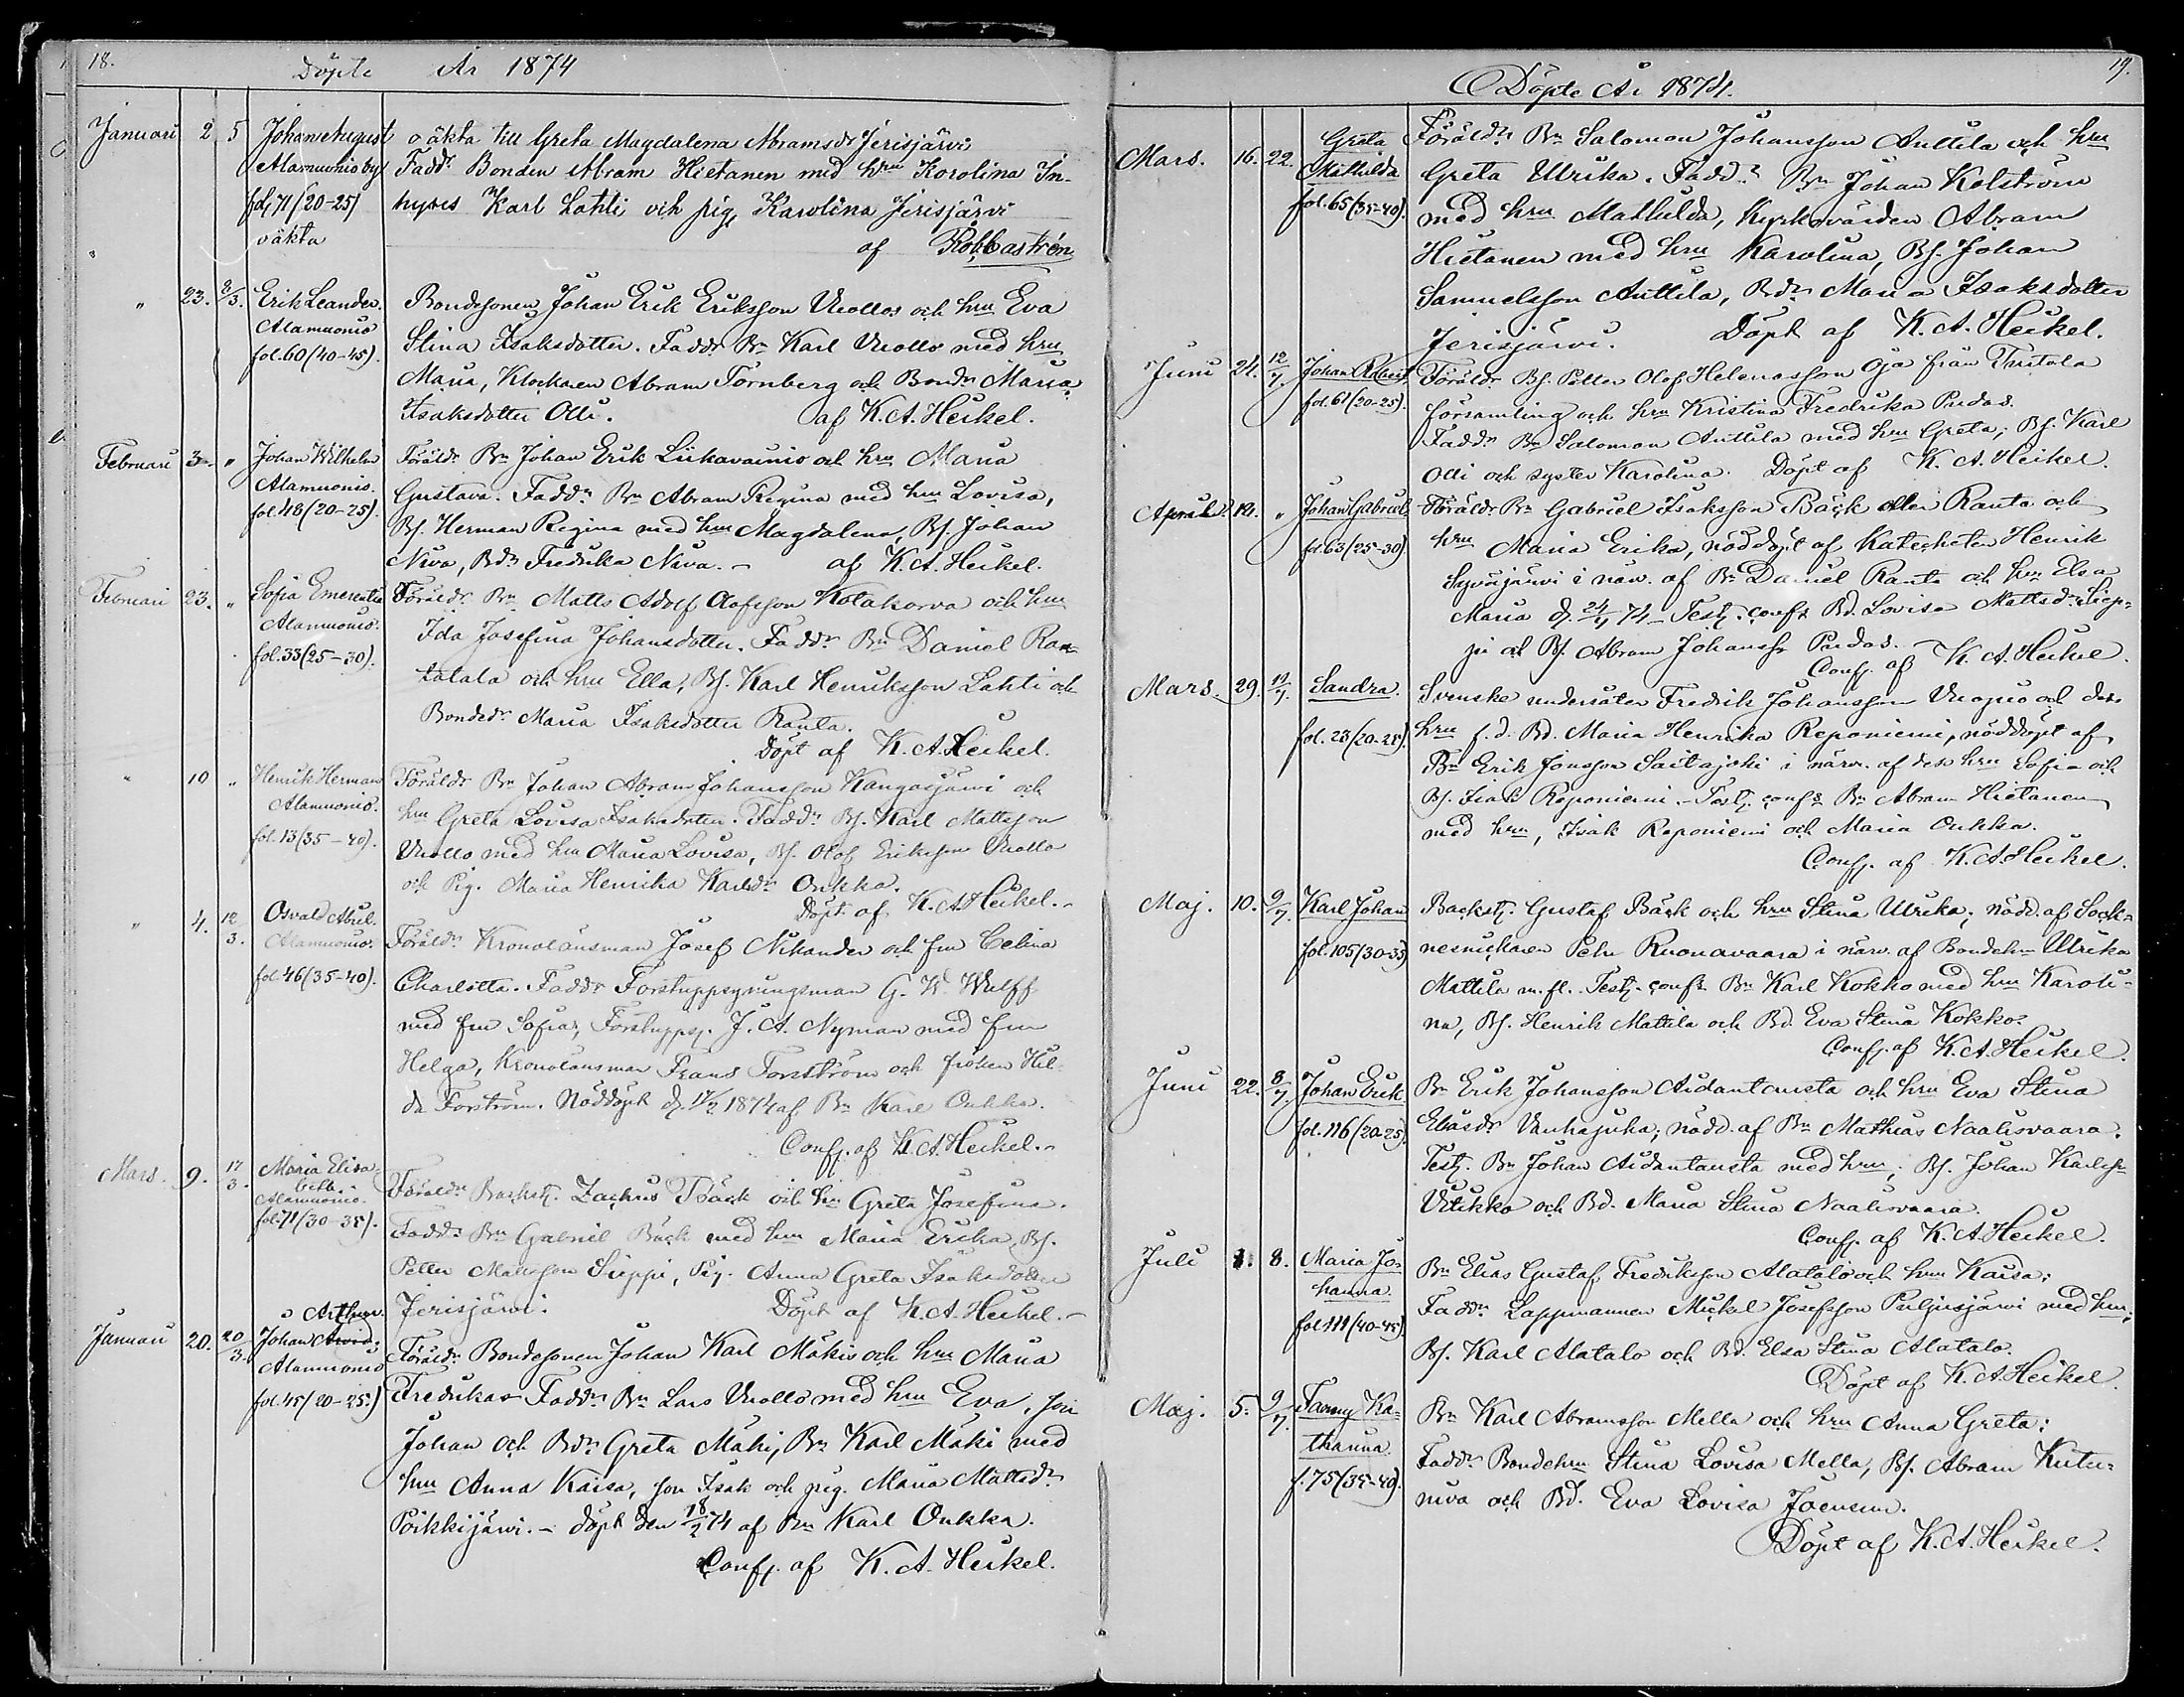 18.
Döpte År 1874
Januari 2 5 Johan August oäkta till Greta Magdalena Abramsdr Jerisjärvi
Alamuonio by Fadd: Bonden Abram Hietanen med hru Karolina In-
fol. 71 (20-25) hyses Karl Lahti och pig. Karolina Jerisjärvi
oäkta af Robb. Castrén
" 23. 8/3. Erik Leander. Bondesonen Johan Erik Eriksson Vuollo och hru Eva
Alamuonio Stina Isaksdotter. Fadd: Bn Karl Vuollo med hru
fol. 60 (40-45). Maria, Klockaren Abram Törnberg och Bondr Maria
Isaksdotter Olli. af K. A. Heikel.
Februari 3 " Johan Wilhelm Föräldr Bn Johan Erik Liikavainio och hru Maria
Alamuonio. Gustava. Faddr Bn Abram Regina med hru Lovisa,
fol. 48 (20-25). Bs. Herman Regina med hru Magdalena, Bs. Johan
Niva, Bdr Fredrika Niva. - af K. A. Heikel.
Februari 23. " Sofia Emerentia Föräldr Bn Matts Adolf Olofsson Kotakorva och hru
Alamuonio. Ida Josefina Johansdotter. Faddr Bn Daniel Ran-
fol. 33 (25-30). tatalo och hru Ella, Bs. Karl Henriksson Lahti och
Bondedr Maria Isaksdotter Ranta.
Döpt af K. A. Heikel.
" 10 " Henrik Herman Föräldr Bn Johan Abram Johansson Kangasjärvi och
Alamuonio. hru Greta Lovisa Isaksdotter. Faddr Bs. Karl Mattsson
fol. 13 (35-40). Vuollo med hru Maria Lovisa, Bs. Olof Eriksson Vuollo
och Pig. Maria Henrika Karlsdr Onkka.
Döpt af K. A. Heikel.
" 4. 12/3. Osvald Abiel. Föräldr Kronolänsman Josef Nikander och fru Celina
Alamuonio.
fol. 46 (35-40). Charlotta. Faddr Forstuppsyningsman G. W. Wulff
med fru Sofia, Forstupps. J. A. Nyman med fru
Helga, Kronolänsman Frans Forsström och fröken Hil-
da Forström. Nöddöpt d. 17/2 1874 af Bn Karl Onkka.
Conf. af K. A. Heikel.
Mars 9. 17/3. Maria Elisa- Föräldr Backst. Zachris Bäck och hru Greta Josefina.
beth.
Alamuonio. Faddr Bn Gabriel Bäck med hru Maria Erika, Bs.
fol. 71 (30-35). Petter Mattsson Sieppi, Pig. Anna Greta Isaksdotter
Jerisjärvi. Döpt af K. A. Heikel.
Arthur.
Januari 20. 20/3. Johan Arvid. Föräldr Bondesonen Johan Karl Mäkis och hru Maria
Alamuonio
fol. 45 (20-25.) Fredrika Faddr Bn Lars Vuollo med hru Eva, son
Johan och Bdr Greta Mäki, Bn Karl Mäki med
hru Anna Kaisa, son Isak och pig. Maria Mattsdr
Poikkijärvi. - döpt den 18/2 74 af Bn Karl Onkka.
Conf. af K. A. Heikel.
19.
Döpte År 1874.
Mars. 16. 22. Greta Föräldr: Bn Salomon Johansson Anttila och hru
Mathilda Greta Ulrika. Fadd: Bn Johan Kolström
fol. 65 (35-40). med hru Mathilda, Kyrkovärden Abram
Hietanen med hru Karolina, Bs. Johan
Samuelsson Anttila, Bdr Maria Isaksdotter
Jerisjärvi. Döpt af K. A. Heikel.
Juni 24. 12/7. Johan Robert. Föräldr Bs. Petter Olof Helenasson Oja från Turtola
fol. 61 (20-25). församling och hru Kristina Fredrika Pardas.
Faddr Bn Salomon Anttila med hru Greta; Bs. Karl
Olli och syster Karolina. Döpt af K. A. Heikel.
April 14. " Johan Gabriel. Föräldr Bn Gabriel Isaksson Bäck eller Ranta och
fol. 63 (25-30). hru Maria Erika, nöddöpt af Katecheten Henrik
Syväjärvi i närv. af Bn Daniel Ranta och hru Elsa
Maria d. 24/4 74 - Test. conf: Bd. Lovisa Mattsdr Siep-
pi och Bs. Abram Johanss. Pardas. -
Conf. af K. A. Heikel.
Mars. 29. 12/7. Sandra. Svenske undersåten Fredrik Johansson Vuopio och dess
fol. 23 (20-25). hru f. d. Bd. Maria Henrika Reponiemi, nöddöpt af
Bn Erik Jonsson Saitajoki i närv. af dess hru Sofia och
Bs. Isak Reponiemi. - Test. conf: Bn Abram Hietanen
med hru, Isak Reponiemi och Maria Onkka.
Conf. af K. A. Heikel.
Maj. 10. 9/7. Karl Johan Backst. Gustaf Bäck och hru Stina Ulrika; nödd. af Sock-
fol. 105 (30-35) nesnickaren Pehr Ruonavaara i närv. af Bondehru Ulrika
Mattila m. fl. Test. conf: Bn Karl Kokko med hru Karoli-
na, Bs. Henrik Mattila och Bd. Eva Stina Kokko.
Conf. af K. A. Heikel.
Juni 22. 8/7. Johan Erik Bn Erik Johansson Aidantausta och hru Eva Stina
fol. 116 (20-25). Eliasdr Vanhajuka; nödd. af Bn Mathias Naalisvaara.
Test. Bn Johan Aidantausta med hru; Bs. Johan Karlss.
Utikko och Bd. Maria Stina Naalisvaara.
Conf. af K. A. Heikel.
Juli 1. 8. Maria Jo- Bn Elias Gustaf Fredriksson Alatalo och hru Kaisa;
hanna. Faddr Lappmannen Mickel Josefsson Puljusjärvi med hru;
fol. 111 (40-45) Bs. Karl Alatalo och Bd. Elsa Stina Alatalo.
Döpt af K. A. Heikel.
Maj. 5. 9/7. Fanny Ka- Bn Karl Abramsson Mella och hru Anna Greta;
tharina Faddr Bondehru Stina Lovisa Mella, Bs. Abram Kutu-
f. 75 (35-40). niva och Bd. Eva Lovisa Joensuu.
Döpt af K. A. Heikel.